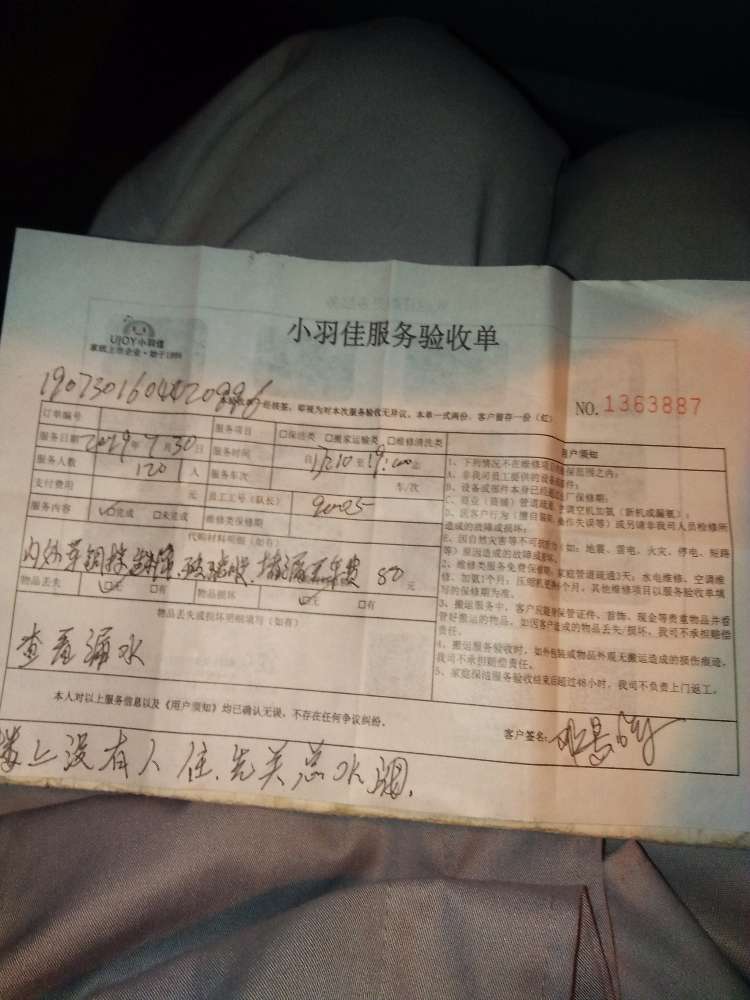 UJOY小羽佳
家政上市企业·始于1999
小羽佳服务验收单
本验收单一经核签，即视为对本次服务验收无异议，本单一式两份，客户留存一份（红）
NO. 1363887
订单编号
服务项目 □保洁类 □搬家运输类 □维修清洗类
服务日期 2019年7月30日
服务时间 自 至 止
服务人数 人
服务车次 车/次
支付费用 120 元
员工工号（队长）
服务内容 ☑完成 □未完成
维修类保修期
代购材料明细（如有）
堵漏 80元
物品丢失 ☑无 □有
物品损坏 ☑无 □有
物品丢失或损坏明细填写（如有）
查看漏水
用户须知
1、下列情况不在维修项目免保范围之内：
A、非我司员工提供的设备或配件；
B、设备或部件本身已经超过出厂保修期；
C、商业（商铺）管道疏通、空调空机加氨（新机或漏氨）；
D、因客户行为（擅自装卸、操作失误等）或另请非我司人员检修所
造成的故障或损坏；
E、因自然灾害等不可抗拒力（如：地震、雷电、火灾、停电、短路
等）原因造成的故障或损坏。
2、维修类服务免费保修期：家庭管道疏通3天；水电维修、空调维
修、加氨1个月；压缩机更换 个月，其他维修项目以服务验收单填
写的保修期为准。
3、搬运服务中，客户应随身保管证件、首饰、现金等贵重物品并看
管好搬运的物品，如因客户造成的物品丢失/损坏，我司不承担赔偿
责任。
4、搬运服务验收时，如外包装或物品外观无搬运造成的损伤痕迹，
我司不承担赔偿责任。
5、家庭保洁服务验收结束后超过48小时，我司不负责上门返工。
本人对以上服务信息以及《用户须知》均已确认无误，不存在任何争议纠纷。
客户签名：
楼上没有人住，先关总水阀。